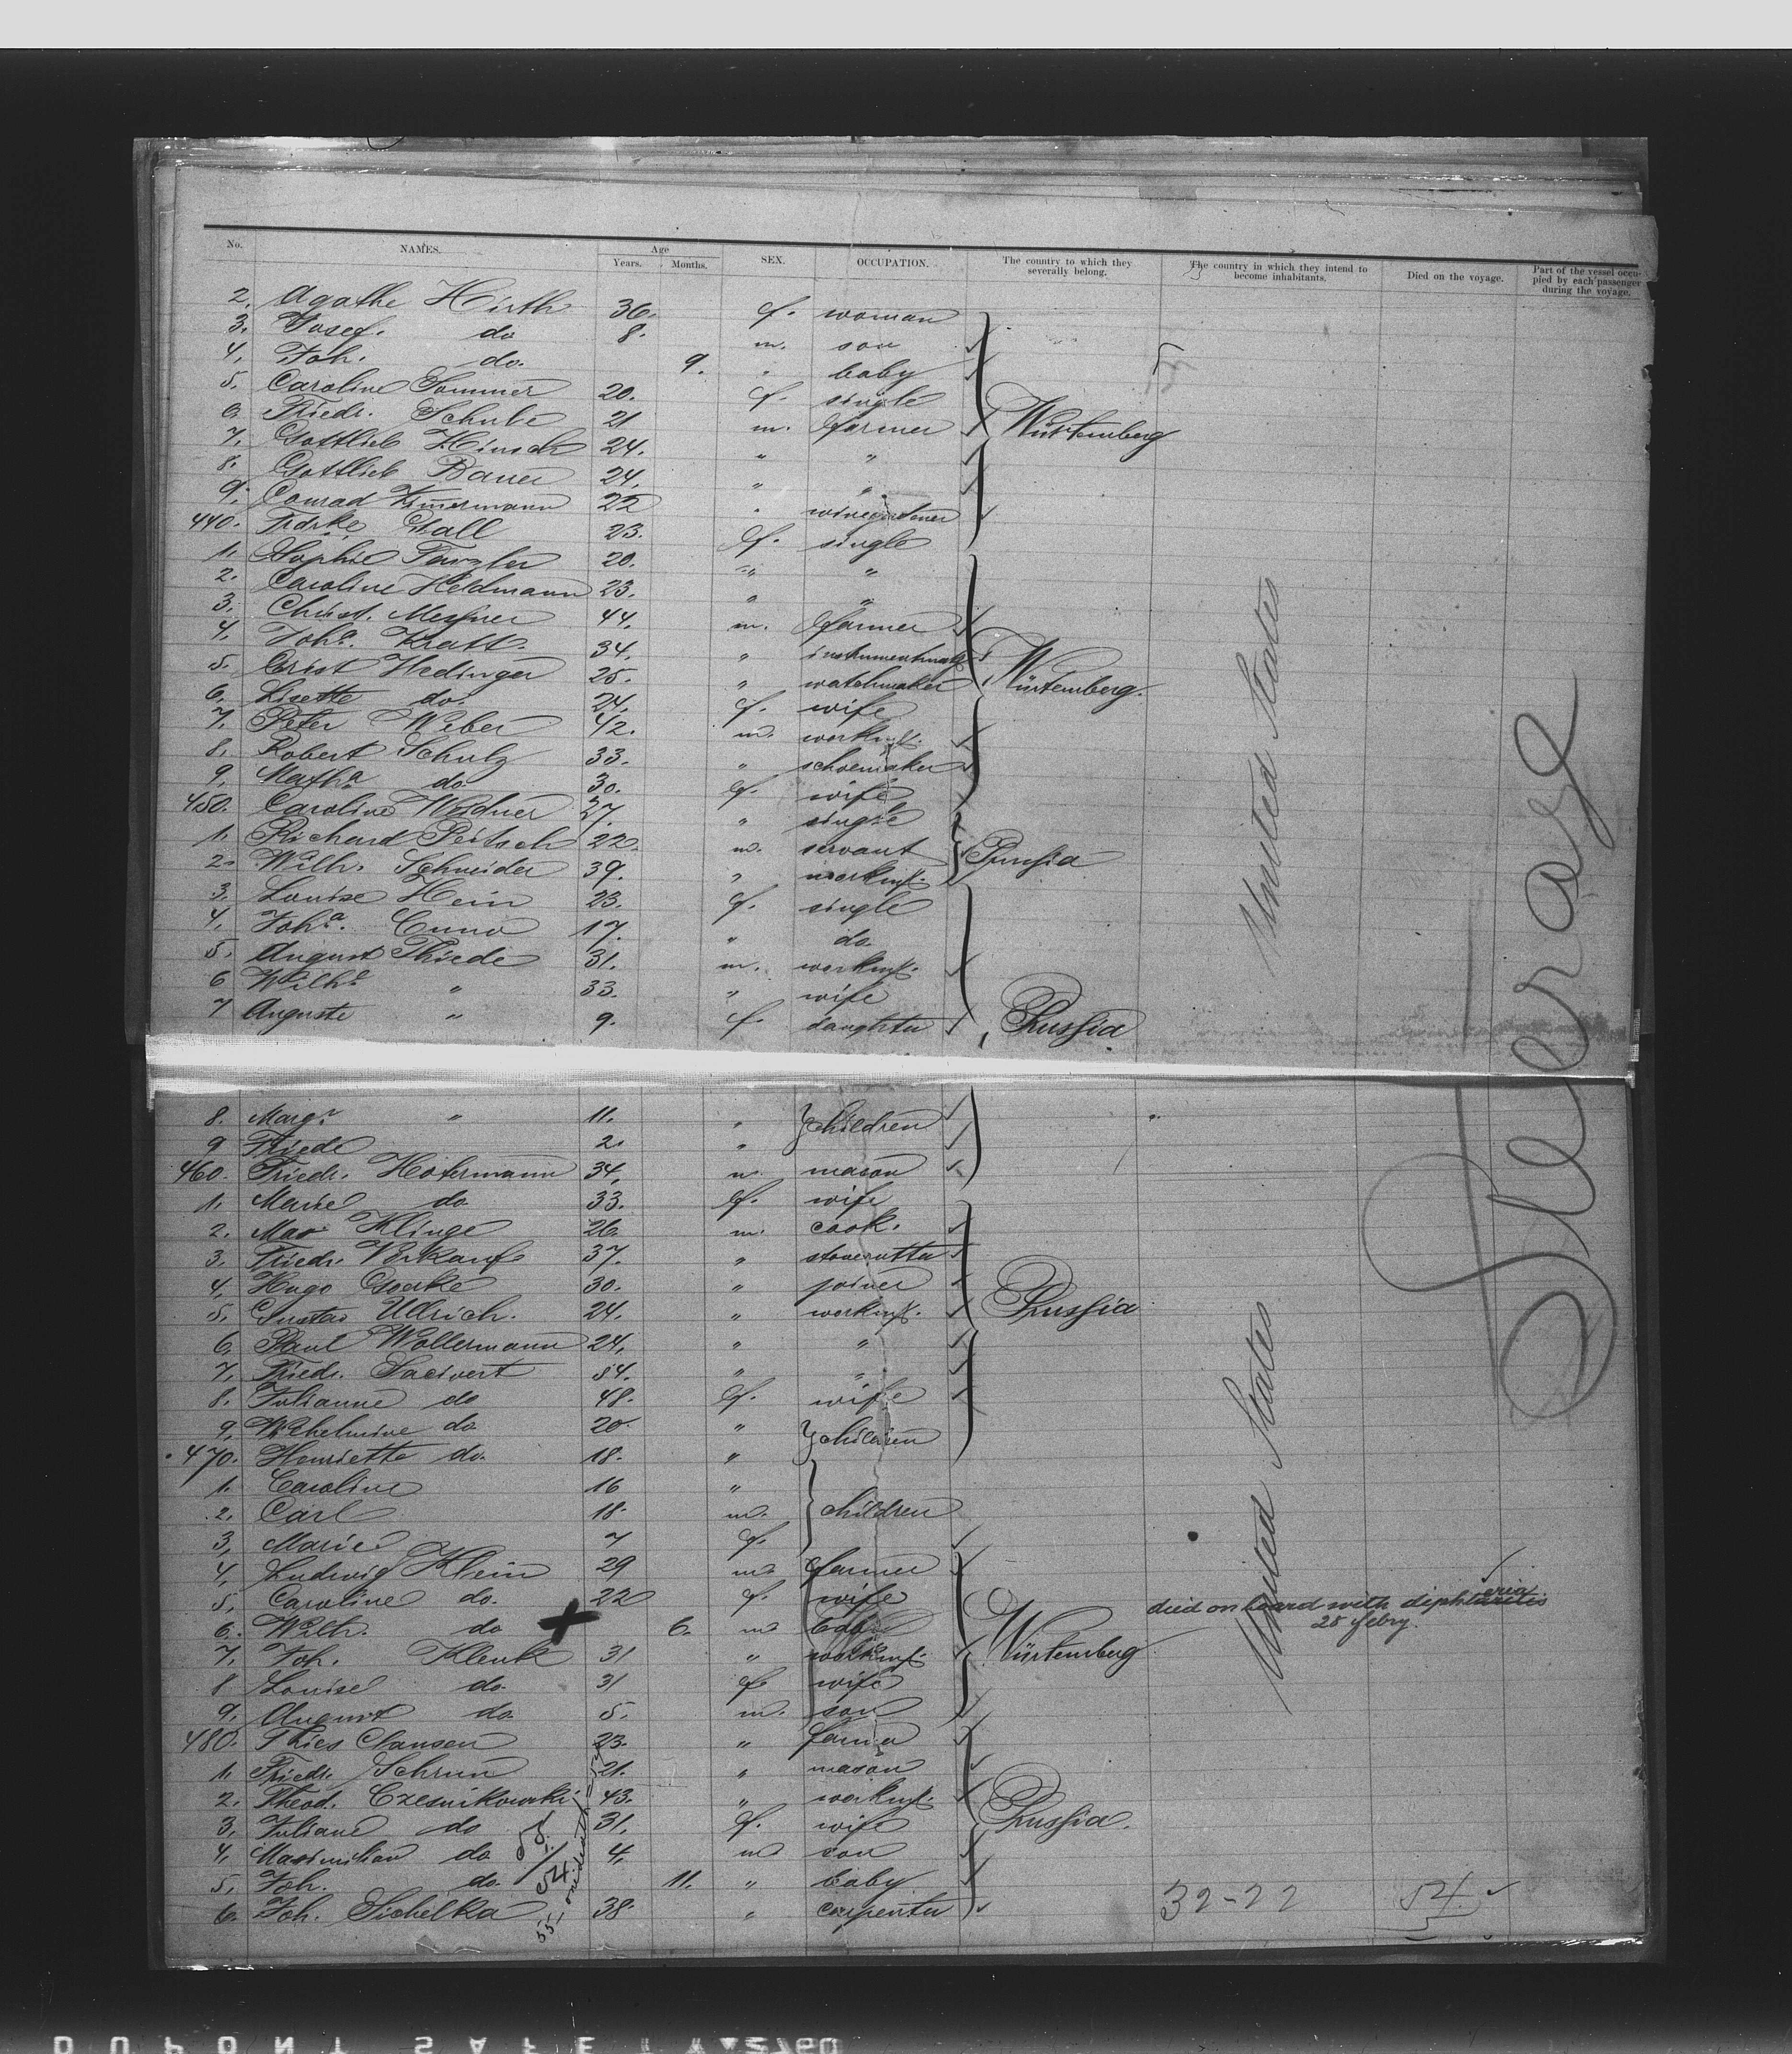 No. NAMES. Age Years. Months. SEX. OCCUPATION. The country to which they severally belong. The country in which they intend to become inhabitants. Died on the voyage. Part of the vessel occupied by each passenger during the voyage.
2. Agathe Hirth 36. f. woman
3. Josef. do 8. m. son
4. Joh. do. 9. " baby
5. Caroline Sommer 20. f. single
6. Friedr. Schube 21 m. farmer Würtemberg
7. Gottlieb Hinsch 24. " "
8. Gottlieb Bauer 24. " "
9. Conrad Zimmermann 22 "
440. Frdrke Stall 23. f. single
1. Sophie 20. " "
2. Caroline Heldmann 23. " "
3. Christ. Messner 44. m. farmer
4. Joha. Kratt. 34. "
5. Christ Hedinger 25. " watchmaker Würtemberg.
6. Lisette do. 24. f. wife
7. Peter Weber 42. m. workmst.
8. Robert Schulz 33. " schoemaker
9. Matha do. 30. f. wife
450. Caroline Weidner 27. " single
1. Richard Peitsch 22. m. servant Prussia
2. Wilh. Schneider 39. " workmst.
3. Louise Hein 23. f. single
4. Joha. Cuno 17. " do.
5. August Thiede 31. m. workmst.
6 Wilhe " 33. " wife
7 Auguste " 9. f. daughter Prussia
United States
Steerage
8. Margr " 11. " children
9 Friede 2. "
460. Friedr. Hotermann 34. m. mason
1. Marie do 33. f. wife
2. Max Klinge 26 m. cook.
3. Friedr. Verkauf 37. " stonecutter
4. Hugo Goerke 30. " joiner Prussia
5. Gustav Ullrich. 24. " workmst.
6. Paul Wollermann 24. " "
7. Friedr. 54. " "
8. Julianne do 48. f. wife
9. Wilhelmine do 20. " children
470. Henriette do. 18. "
1. Caroline 16 "
2. Carl 18. m. children
3. Marie 7 f.
4. Ludwig Klein 29 m. farmer
5. Caroline do. 22 f. wife died on board with diphteria
6. Wilh. do 6. m baby 28 febry.
7. Joh. Klenk 31 " workmst. Würtemberg
8 Louise do. 31 f wife
9. August do. 5. m. son
480. Thies Clausen 23. " farmer
1. Friedr. Schrum 21. " mason
2. Theod. Czesnikowski 43. " workmst. Prussia.
3. Juliane do 31. f. wife
4. Maximilian do 4. m son
5. Joh. do. 11. " baby
6. Joh. Sichelka 38. " carpenter
United States
55. / 54
55, one death
32-22 54.
DUPONT SAFETY